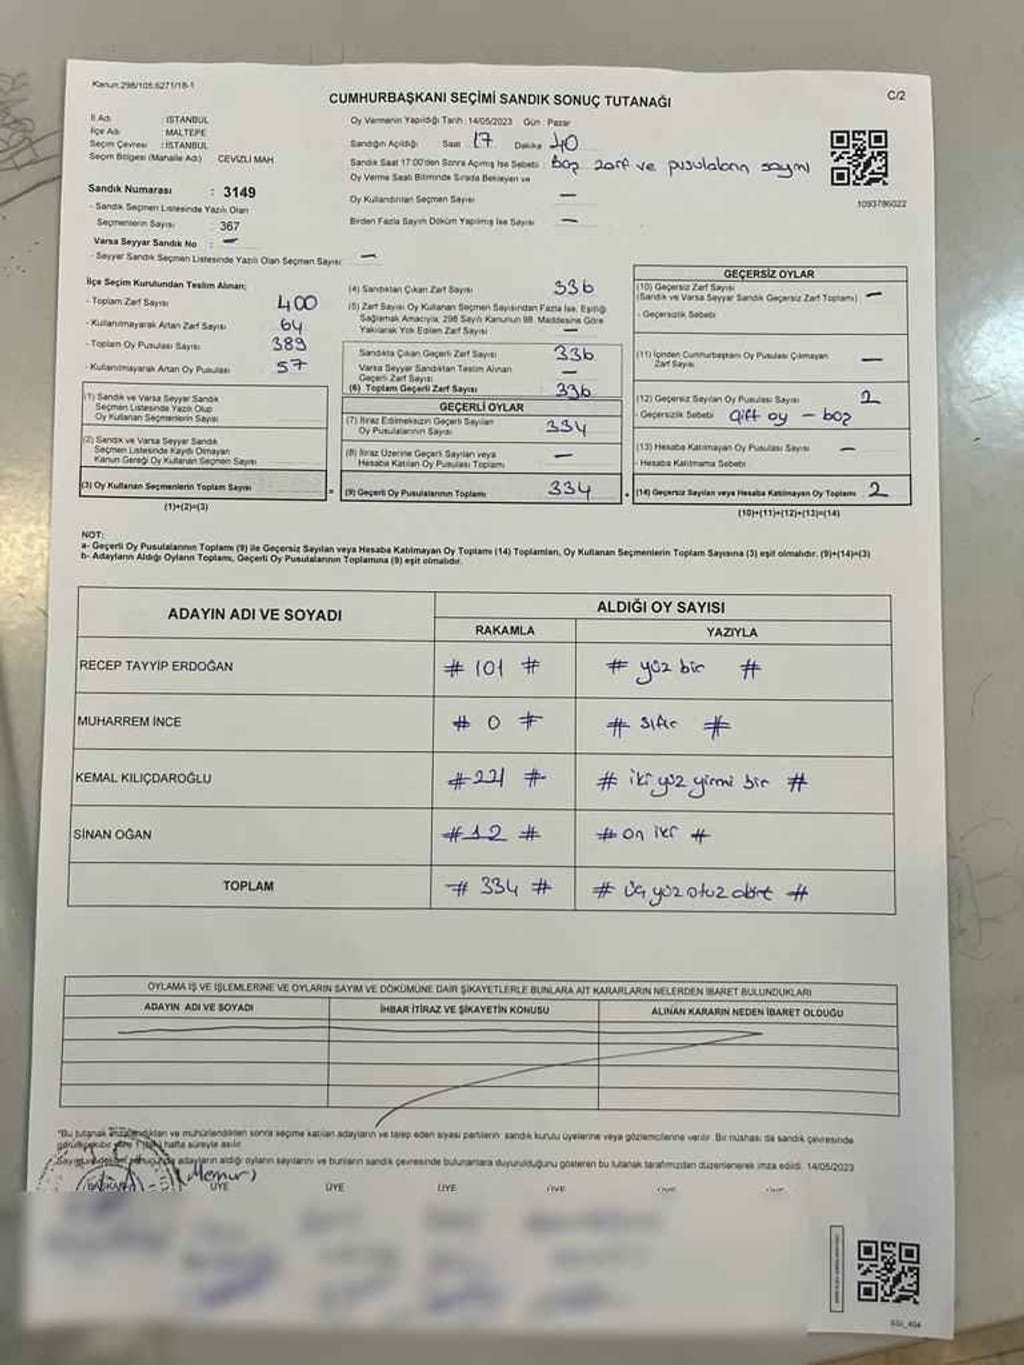 Kanun:298/105.6271/18-1
CUMHURBAŞKANI SEÇİMİ SANDIK SONUÇ TUTANAĞI
C/2
İl Adı : İSTANBUL
İlçe Adı : MALTEPE
Seçim Çevresi : İSTANBUL
Seçim Bölgesi (Mahalle Adı) CEVİZLİ MAH
Sandık Numarası : 3149
- Sandık Seçmen Listesinde Yazılı Olan
Seçmenlerin Sayısı : 367
Varsa Seyyar Sandık No : —
- Seyyar Sandık Seçmen Listesinde Yazılı Olan Seçmen Sayısı —
Oy Vermenin Yapıldığı Tarih : 14/05/2023 Gün : Pazar
Sandığın Açıldığı Saat 17 Dakika 40
Sandık Saat 17:00'den Sonra Açılmış İse Sebebi boş zarf ve pusulaların sayımı
Oy Verme Saati Bitiminde Sırada Bekleyen ve
Oy Kullandırılan Seçmen Sayısı —
Birden Fazla Sayım Döküm Yapılmış İse Sayısı —
1093786022
İlçe Seçim Kurulundan Teslim Alınan;
- Toplam Zarf Sayısı 400
- Kullanılmayarak Artan Zarf Sayısı 64
- Toplam Oy Pusulası Sayısı 389
- Kullanılmayarak Artan Oy Pusulası 57
(1) Sandık ve Varsa Seyyar Sandık
Seçmen Listesinde Yazılı Olup
Oy Kullanan Seçmenlerin Sayısı
(2) Sandık ve Varsa Seyyar Sandık
Seçmen Listesinde Kaydı Olmayan
Kanun Gereği Oy Kullanan Seçmen Sayısı
(3) Oy Kullanan Seçmenlerin Toplam Sayısı
(1)+(2)=(3)
(4) Sandıktan Çıkan Zarf Sayısı 336
(5) Zarf Sayısı Oy Kullanan Seçmen Sayısından Fazla İse, Eşitliği
Sağlamak Amacıyla, 298 Sayılı Kanunun 98. Maddesine Göre
Yakılarak Yok Edilen Zarf Sayısı —
Sandıkta Çıkan Geçerli Zarf Sayısı 336
Varsa Seyyar Sandıktan Teslim Alınan
Geçerli Zarf Sayısı —
(6) Toplam Geçerli Zarf Sayısı 336
GEÇERLİ OYLAR
(7) İtiraz Edilmeksizin Geçerli Sayılan
Oy Pusulalarının Sayısı 334
(8) İtiraz Üzerine Geçerli Sayılan veya
Hesaba Katılan Oy Pusulası Toplamı —
= (9) Geçerli Oy Pusulalarının Toplamı 334
GEÇERSİZ OYLAR
(10) Geçersiz Zarf Sayısı
(Sandık ve Varsa Seyyar Sandık Geçersiz Zarf Toplamı) —
- Geçersizlik Sebebi
(11) İçinden Cumhurbaşkanı Oy Pusulası Çıkmayan
Zarf Sayısı —
(12) Geçersiz Sayılan Oy Pusulası Sayısı 2
- Geçersizlik Sebebi çift oy - boş
(13) Hesaba Katılmayan Oy Pusulası Sayısı —
- Hesaba Katılmama Sebebi
(14) Geçersiz Sayılan veya Hesaba Katılmayan Oy Toplamı 2
(10)+(11)+(12)+(13)=(14)
NOT:
a- Geçerli Oy Pusulalarının Toplamı (9) ile Geçersiz Sayılan veya Hesaba Katılmayan Oy Toplamı (14) Toplamları, Oy Kullanan Seçmenlerin Toplam Sayısına (3) eşit olmalıdır. (9)+(14)=(3)
b- Adayların Aldığı Oyların Toplamı, Geçerli Oy Pusulalarının Toplamına (9) eşit olmalıdır.
ADAYIN ADI VE SOYADI
ALDIĞI OY SAYISI
RAKAMLA YAZIYLA
RECEP TAYYİP ERDOĞAN # 101 # # yüz bir #
MUHARREM İNCE # 0 # # sıfır #
KEMAL KILIÇDAROĞLU # 221 # # iki yüz yirmi bir #
SİNAN OĞAN # 12 # # on iki #
TOPLAM # 334 # # üç yüz otuz dört #
OYLAMA İŞ VE İŞLEMLERİNE VE OYLARIN SAYIM VE DÖKÜMÜNE DAİR ŞİKAYETLERLE BUNLARA AİT KARARLARIN NELERDEN İBARET BULUNDUKLARI
ADAYIN ADI VE SOYADI İHBAR İTİRAZ VE ŞİKAYETİN KONUSU ALINAN KARARIN NEDEN İBARET OLDUĞU
*Bu tutanak imzalandıktan ve mühürlendikten sonra seçime katılan adayların ve talep eden siyasi partilerin sandık kurulu üyelerine veya gözlemcilerine verilir. Bir nüshası da sandık çevresinde
hafta süreyle asılır.
adayların aldığı oyların sayılarını ve bunların sandık çevresinde bulunanlara duyurulduğunu gösteren bu tutanak tarafımızdan düzenlenerek imza edildi. 14/05/2023
(Memur)
BAŞKAN ÜYE ÜYE ÜYE ÜYE